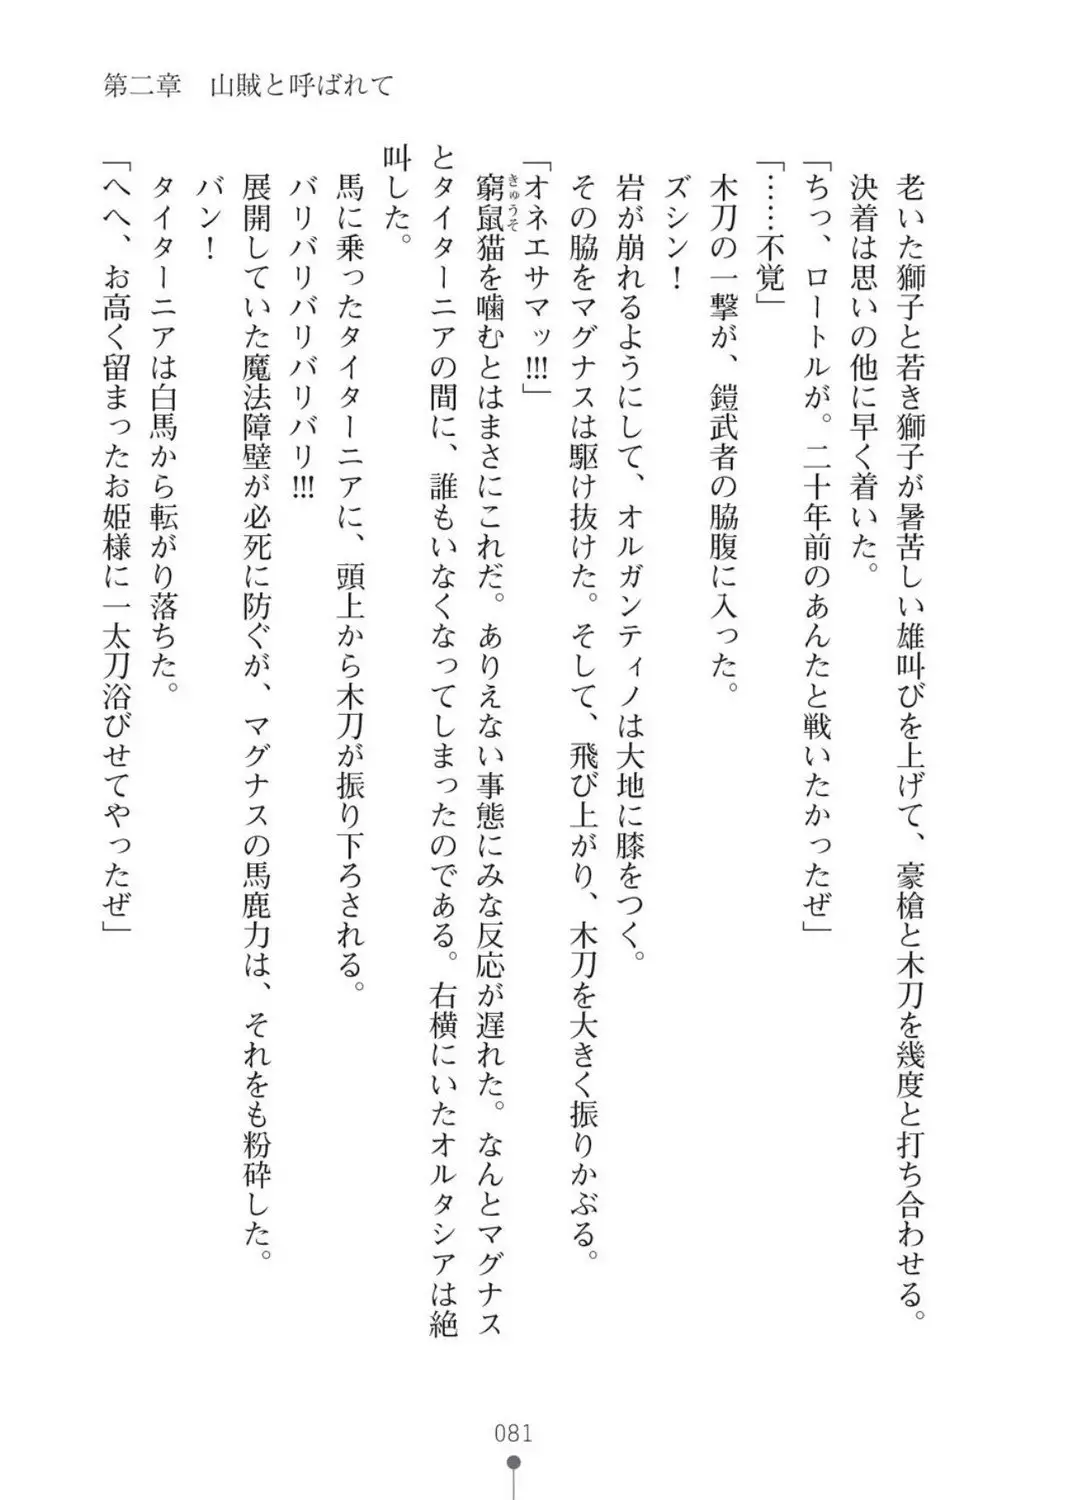 第二章　山賊と呼ばれて
老いた獅子と若き獅子が暑苦しい雄叫びを上げて、豪槍と木刀を幾度と打ち合わせる。
決着は思いの他に早く着いた。
「ちっ、ロートルが。二十年前のあんたと戦いたかったぜ」
「……不覚」
木刀の一撃が、鎧武者の脇腹に入った。
ズシン！
岩が崩れるようにして、オルガンティノは大地に膝をつく。
その脇をマグナスは駆け抜けた。そして、飛び上がり、木刀を大きく振りかぶる。
「オネエサマッ!!!」
窮鼠猫を噛むとはまさにこれだ。ありえない事態にみな反応が遅れた。なんとマグナス
きゅうそ
とタイターニアの間に、誰もいなくなってしまったのである。右横にいたオルタシアは絶
叫した。
馬に乗ったタイターニアに、頭上から木刀が振り下ろされる。
バリバリバリバリバリ!!!
展開していた魔法障壁が必死に防ぐが、マグナスの馬鹿力は、それをも粉砕した。
バン！
タイターニアは白馬から転がり落ちた。
「へへ、お高く留まったお姫様に一太刀浴びせてやったぜ」
081